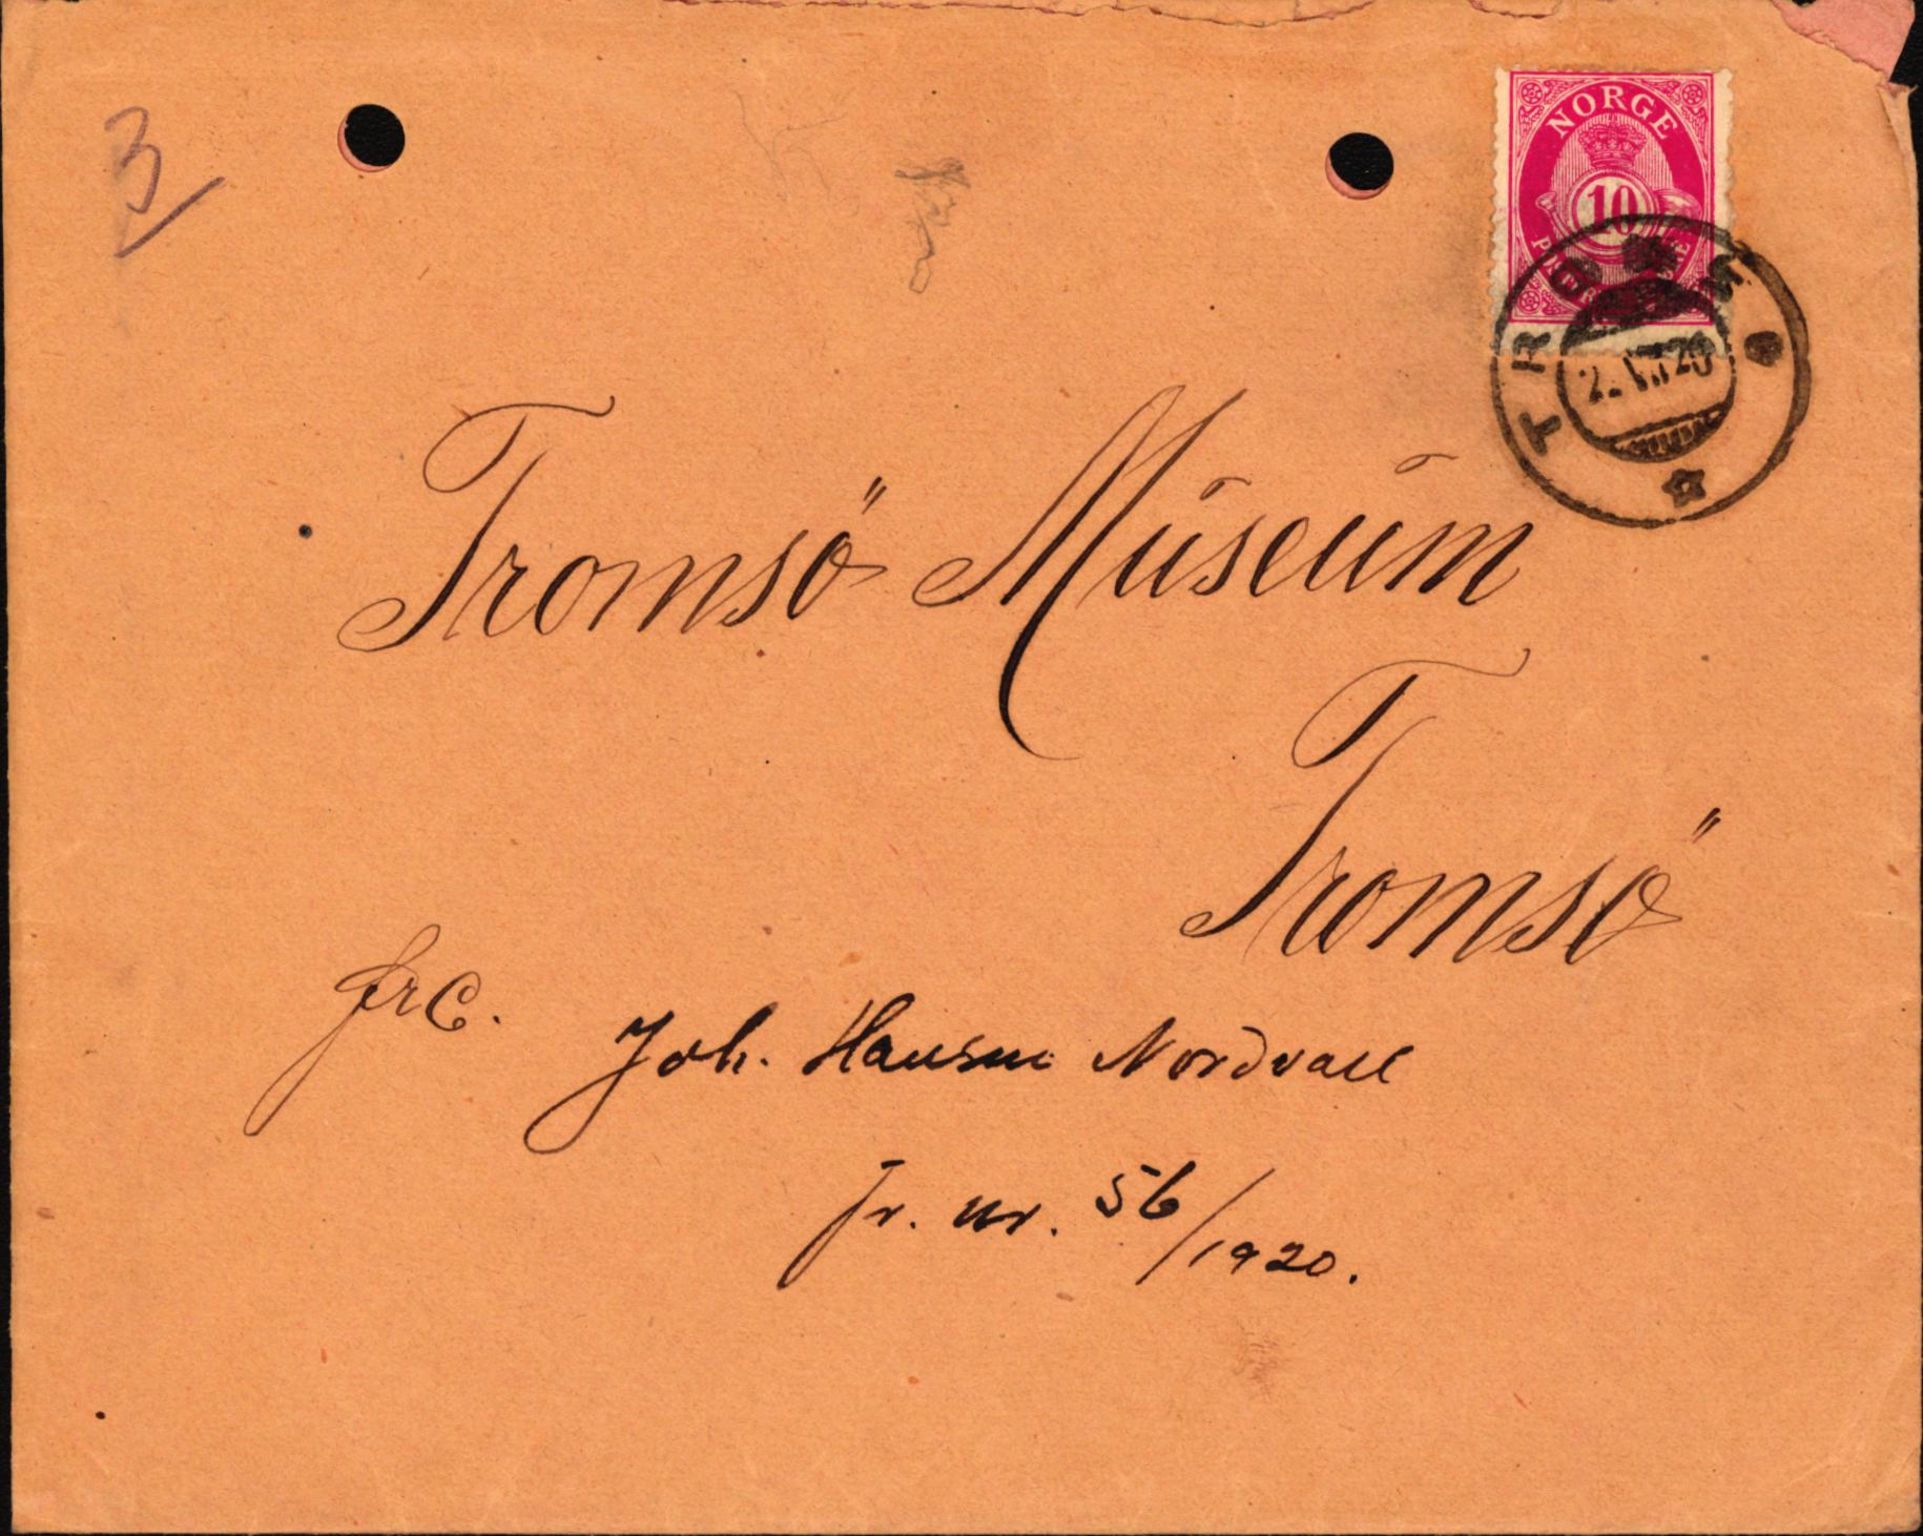 3
NORGE
10
TROMSØ
2. VII 20
Tromsö Museum
Tromsö
frc.
Joh. Hansen Nordvall
Jr. nr. 56/1920.